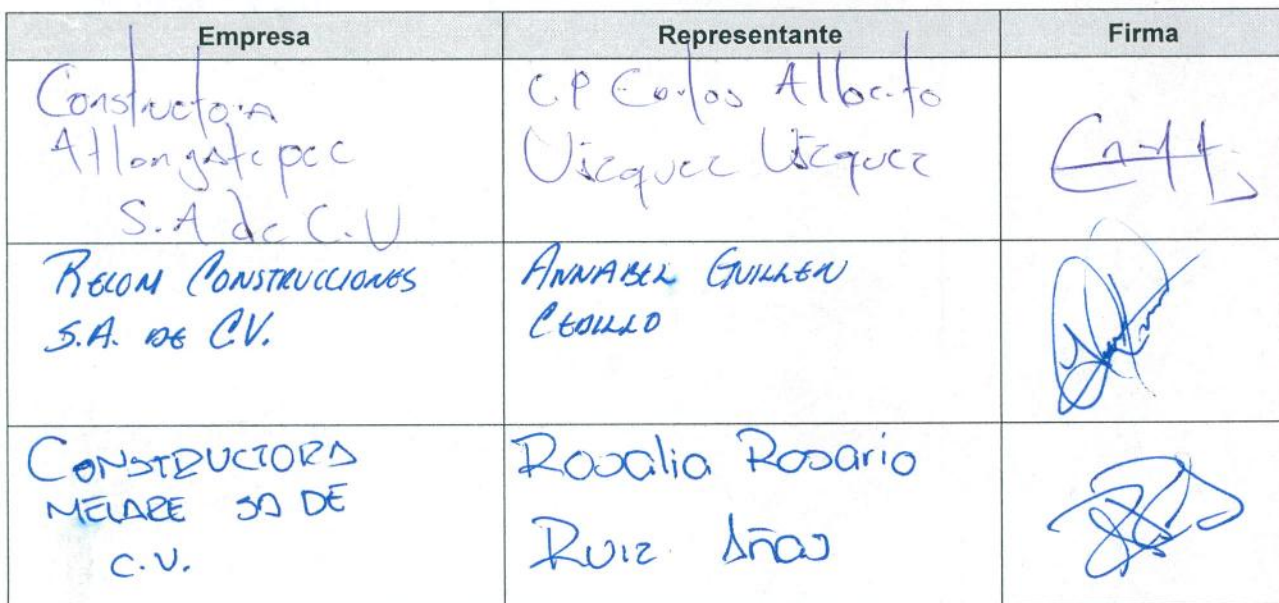 Empresa
Representante
Firma
Constructora
Atlangatepec
S.A de C.V
C.P Carlos Alberto
Vázquez Vázquez
RECOM CONSTRUCCIONES
S.A. DE C.V.
ANNABEL GUILLEN
CEDILLO
CONSTRUCTORA
MELARE SA DE
C.V.
Rosalia Rosario
Ruiz Añas